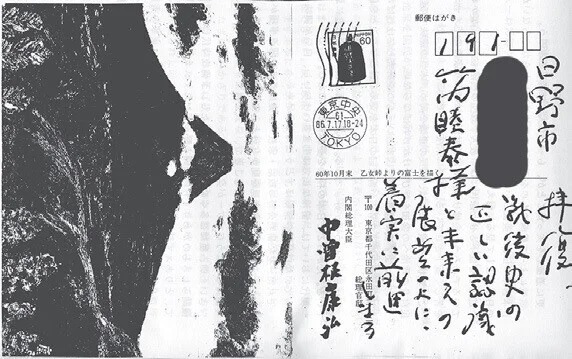 郵便はがき
191-
NIPPON
60
東京中央
61
86.7.17 18-24
TOKYO
日野市
筒睦泰様
60年10月末 乙女峠よりの富士を描く
拝復、
戦後史の
正しい認識
と未来への
展望の上に、
着実に前進
しませう
〒100 東京都千代田区永田
総理官邸
内閣総理大臣
中曽根康弘